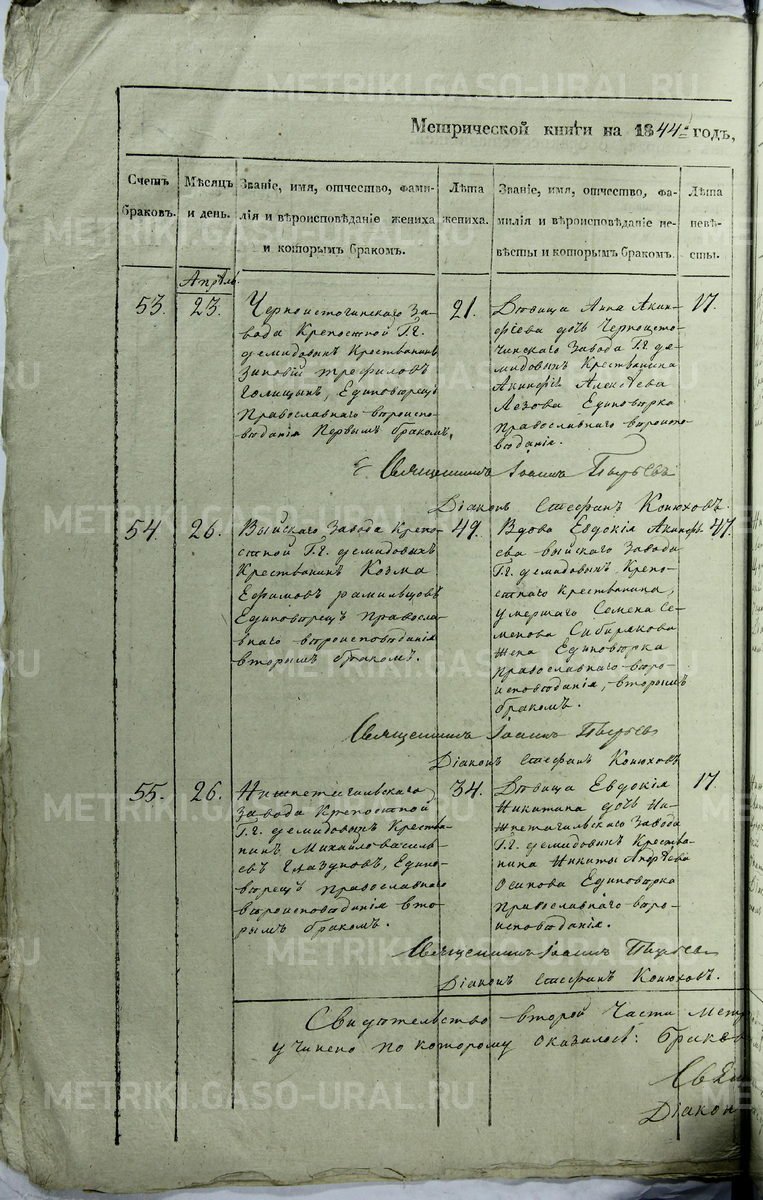 METRIKI.GASO-URAL.RU
Метрической книги на 1844й годъ,
Счетъ браковъ.
Мѣсяцъ и день.
Званіе, имя, отчество, фами-
лія и вѣроисповѣданіе жениха
и которымъ бракомъ.
Лѣта
жениха.
Званіе, имя, отчество, фа-
милія и вѣроисповѣданіе не-
вѣсты и которымъ бракомъ.
Лѣта
невѣ-
сты.
Апрѣль.
53.
23.
Черноисточинскаго За-
вода Крепостной Г.г.
Демидовыхъ Крестьянинъ
Зиновій Трефиловъ
Голицынъ, Единоверецъ
Православнаго вероиспо-
веданія Первымъ бракомъ.
21.
Девица Анна Акин-
фіева дочь Черноисто-
чинскаго Завода Г.г. Де-
мидовыхъ Крестьянина
Акинфія Алексѣева
Лезова Единоверка
Православнаго вероиспо-
веданія.
17.
Священникъ Іоаннъ Пырьевъ
Діаконъ Стефанъ Конюховъ.
54.
26.
Выйскаго Завода Крепо-
стной Г.г. Демидовыхъ
Крестьянинъ Козма
Ефимовъ
Единоверецъ Правосла-
внаго вероисповеданія
вторымъ бракомъ.
49.
Вдова Евдокія Акинфі-
ева Выйскаго Завода
Г.г. Демидовыхъ Крепо-
стнаго Крестьянина,
умершаго Семена Се-
менова Сибирякова
жена Единоверка
Православнаго веро-
исповеданія, вторымъ
бракомъ.
47.
Священникъ Іоаннъ Пырьевъ
Діаконъ Стефанъ Конюховъ
55.
26.
Нижнетагильскаго
Завода Крепостной
Г.г. Демидовыхъ Крестья-
нинъ Михайло Василь-
евъ Глазуновъ, Едино-
верецъ Православнаго
вероисповеданія вто-
рымъ бракомъ.
34.
Девица Евдокія
Никитина дочь Ни-
жнетагильскаго Завода
Г.г. Демидовыхъ Крестья-
нина Никиты Андрѣева
Осипова Единоверка
Православнаго веро-
исповеданія.
17.
Священникъ Іоаннъ Пырьевъ
Діаконъ Стефанъ Конюховъ.
Свидетельство второй Части Метр
учинено по которому оказалось: браков
Свящ
Діакон